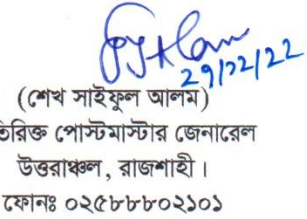 29/12/22
(শেখ সাইফুল আলম)
তিরিক্ত পোস্টমাস্টার জেনারেল
উত্তরাঞ্চল, রাজশাহী।
ফোনঃ ০২৫৮৮৮০২১০১